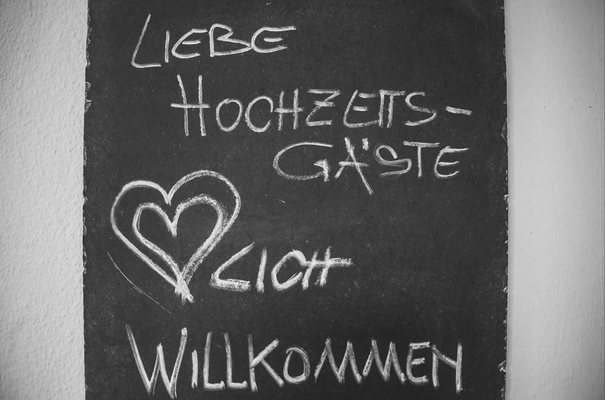 LIEBE
HOCHZEITS-
GÄSTE
♥LICH
WILLKOMMEN